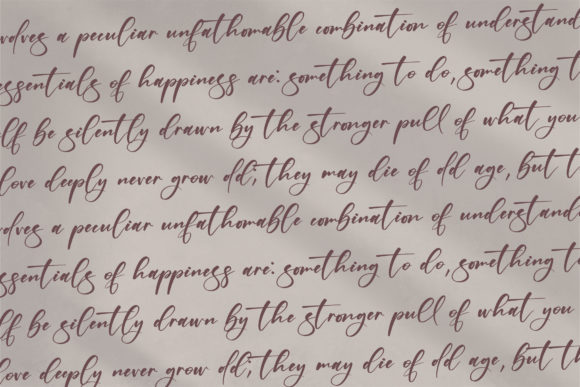 volves a peculiar unfathomable combination of understand
essentials of happiness are: something to do, something t
lf be silently drawn by the stronger pull of what you
love deeply never grow old; they may die of old age, but t
volves a peculiar unfathomable combination of understand
ssentials of happiness are: something to do, something to
lf be silently drawn by the stronger pull of what you
love deeply never grow old; they may die of old age, but th